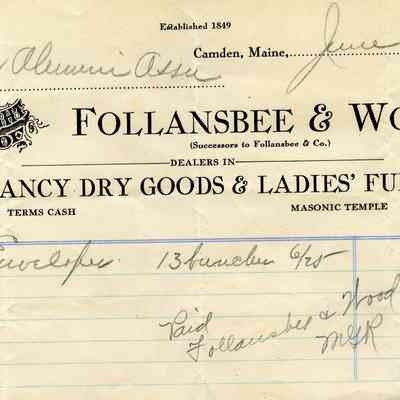 Established 1849
Camden, Maine, June
Alumni Assn
FOLLANSBEE & WO
(Successors to Follansbee & Co.)
DEALERS IN
ANCY DRY GOODS & LADIES' FU
TERMS CASH MASONIC TEMPLE
Envelopes 13 bunches 6/25
Paid
Follansbee & Wood
MGR